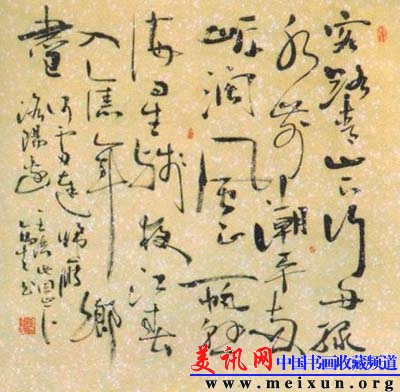 客路青山下行舟绿
水前潮平两
岸阔风正一帆悬
海日生残夜江春
入旧年鄉
書
何处達归雁
洛陽邊
王湾次北固山下
书
美讯网 中国书画收藏频道
www.meixun.org